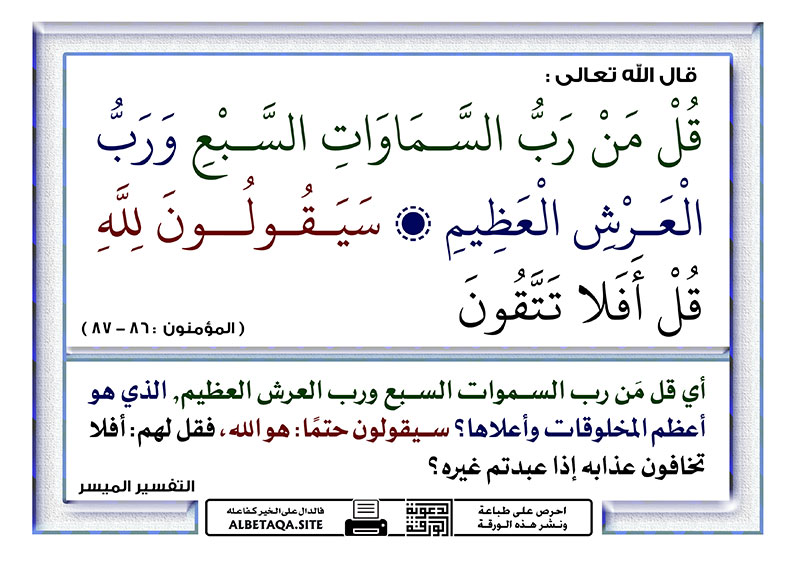 قال الله تعالى :
قُلْ مَنْ رَبُّ السَّـمَاوَاتِ السَّـبْعِ وَرَبُّ
الْعَـرْشِ الْعَظِيمِ ۞ سَيَـقُـولُـونَ لِلَّهِ
قُلْ أَفَلا تَتَّقُونَ
( المؤمنون : ٨٦ - ٨٧ )
أي قل مَن رب السـموات السـبع ورب العرش العظيم, الذي هو
أعظم المخلوقات وأعلاها؟ سـيقولون حتمًا: هو الله، فقل لهم: أفلا
تخافون عذابه إذا عبدتم غيره؟
التفسير الميسر
احرص على طباعة
ونشر هذه الورقة
الدعوية
الورقة
فالدال على الخير كفاعله
ALBETAQA.SITE